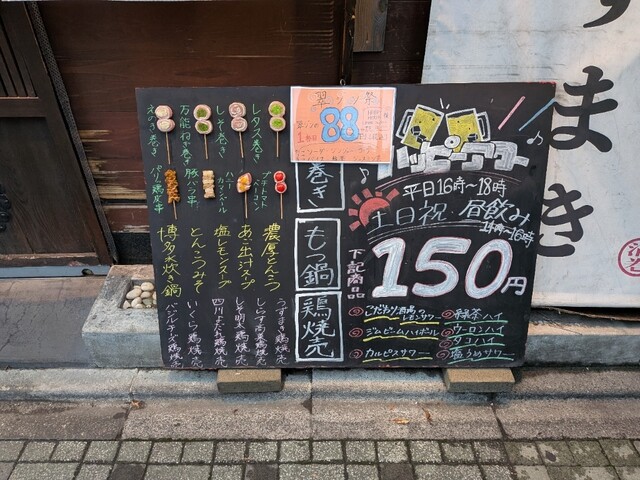 レタス巻き
しそ巻き
万能ねぎ巻き
えのき巻き
プチトマトベーコン
ハニーカマンベール
豚バラ串
パリパリ鶏皮串
濃厚とんこつ
あご出汁スープ
塩レモンスープ
とんこつみそ
博多水炊き鍋
うずまき鶏焼売
しらす高菜鶏焼売
しそ明太鶏焼売
四川よだれ鶏焼売
いくら鶏焼売
バジルチーズ鶏焼売
88
巻き
もつ鍋
鶏焼売
ハッピーアワー
平日16時〜18時
土日祝・昼飲み
14時〜16時
下記商品
150円
こだわり酒場レモンサワー
ジムビームハイボール
カルピスサワー
緑茶ハイ
ウーロンハイ
タコハイ
塩うめサワー
ずまき